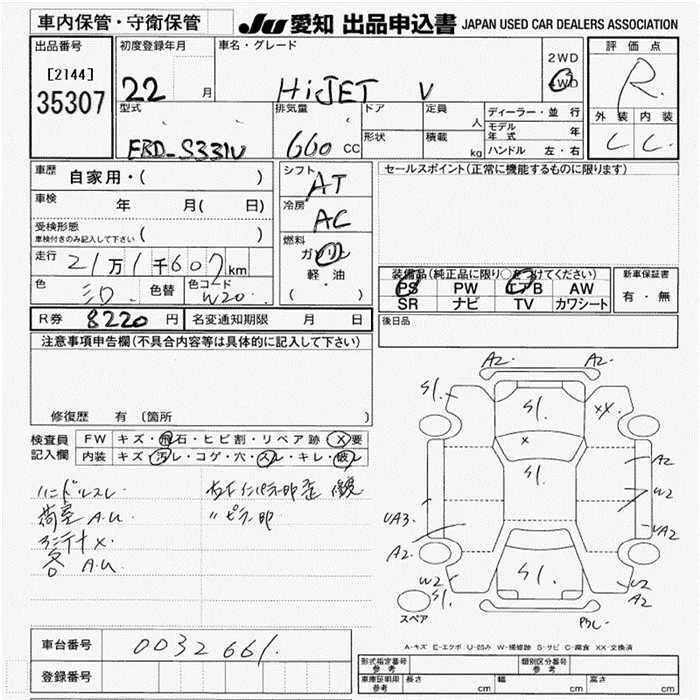 車内保管・守衛保管
JU 愛知 出品申込書 JAPAN USED CAR DEALERS ASSOCIATION
出品番号
[2144]
35307
初度登録年月
22 月
車名・グレード
HiJET V
2WD
4WD
評価点
R
外装 内装
C C
型式
EBD-S331V
排気量
660 CC
ドア
形状
定員
人
積載
kg
ディーラー・並行
モデル年式 年
ハンドル 左・右
車歴 自家用・( )
車検 年 月( 日)
受検形態
車検付きのみ記入して下さい ( )
走行 21万1千607km
色 シロ 色替 色コード W20
シフト AT
冷房 AC
燃料
ガソリン
軽・油
( )
セールスポイント(正常に機能するものに限ります)
装備品(純正品に限り○をつけてください)
PS PW エアB AW
SR ナビ TV カワシート
新車保証書
有・無
R券 8220 円 名変通知期限 月 日
後日品
注意事項申告欄(不具合内容等は具体的に記入して下さい)
修復歴 有 (箇所 )
検査員
記入欄
FW キズ・飛石・ヒビ割・リペア跡・X要
内装 キズ・汚レ・コゲ・穴・スレ・キレ・破レ
ハンドルスレ
荷室 A.U
各 A.U
A2. A2.
S1. S1. XX.
X
S1.
A2
W2
UA3. UA2
A2.
W2 S1. U2
S1. A2
スペア
A-キズ E-エクボ U-凹み W-補修跡 S-サビ C-腐食 XX-交換済
車台番号 0032661.
登録番号
形式指定番号 参考 類別区分番号 参考
車庫証明用 参考 長さ cm 幅 cm 高さ cm